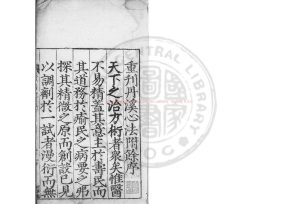 重刊丹溪心法附餘序
天下之治方術者衆矣惟醫
不易精蓋其意主於壽民而
其道務於療民之病要之弗
探其精微之原而創設已見
以調劑於一試者漫術而無
CENTRAL LIBRARY